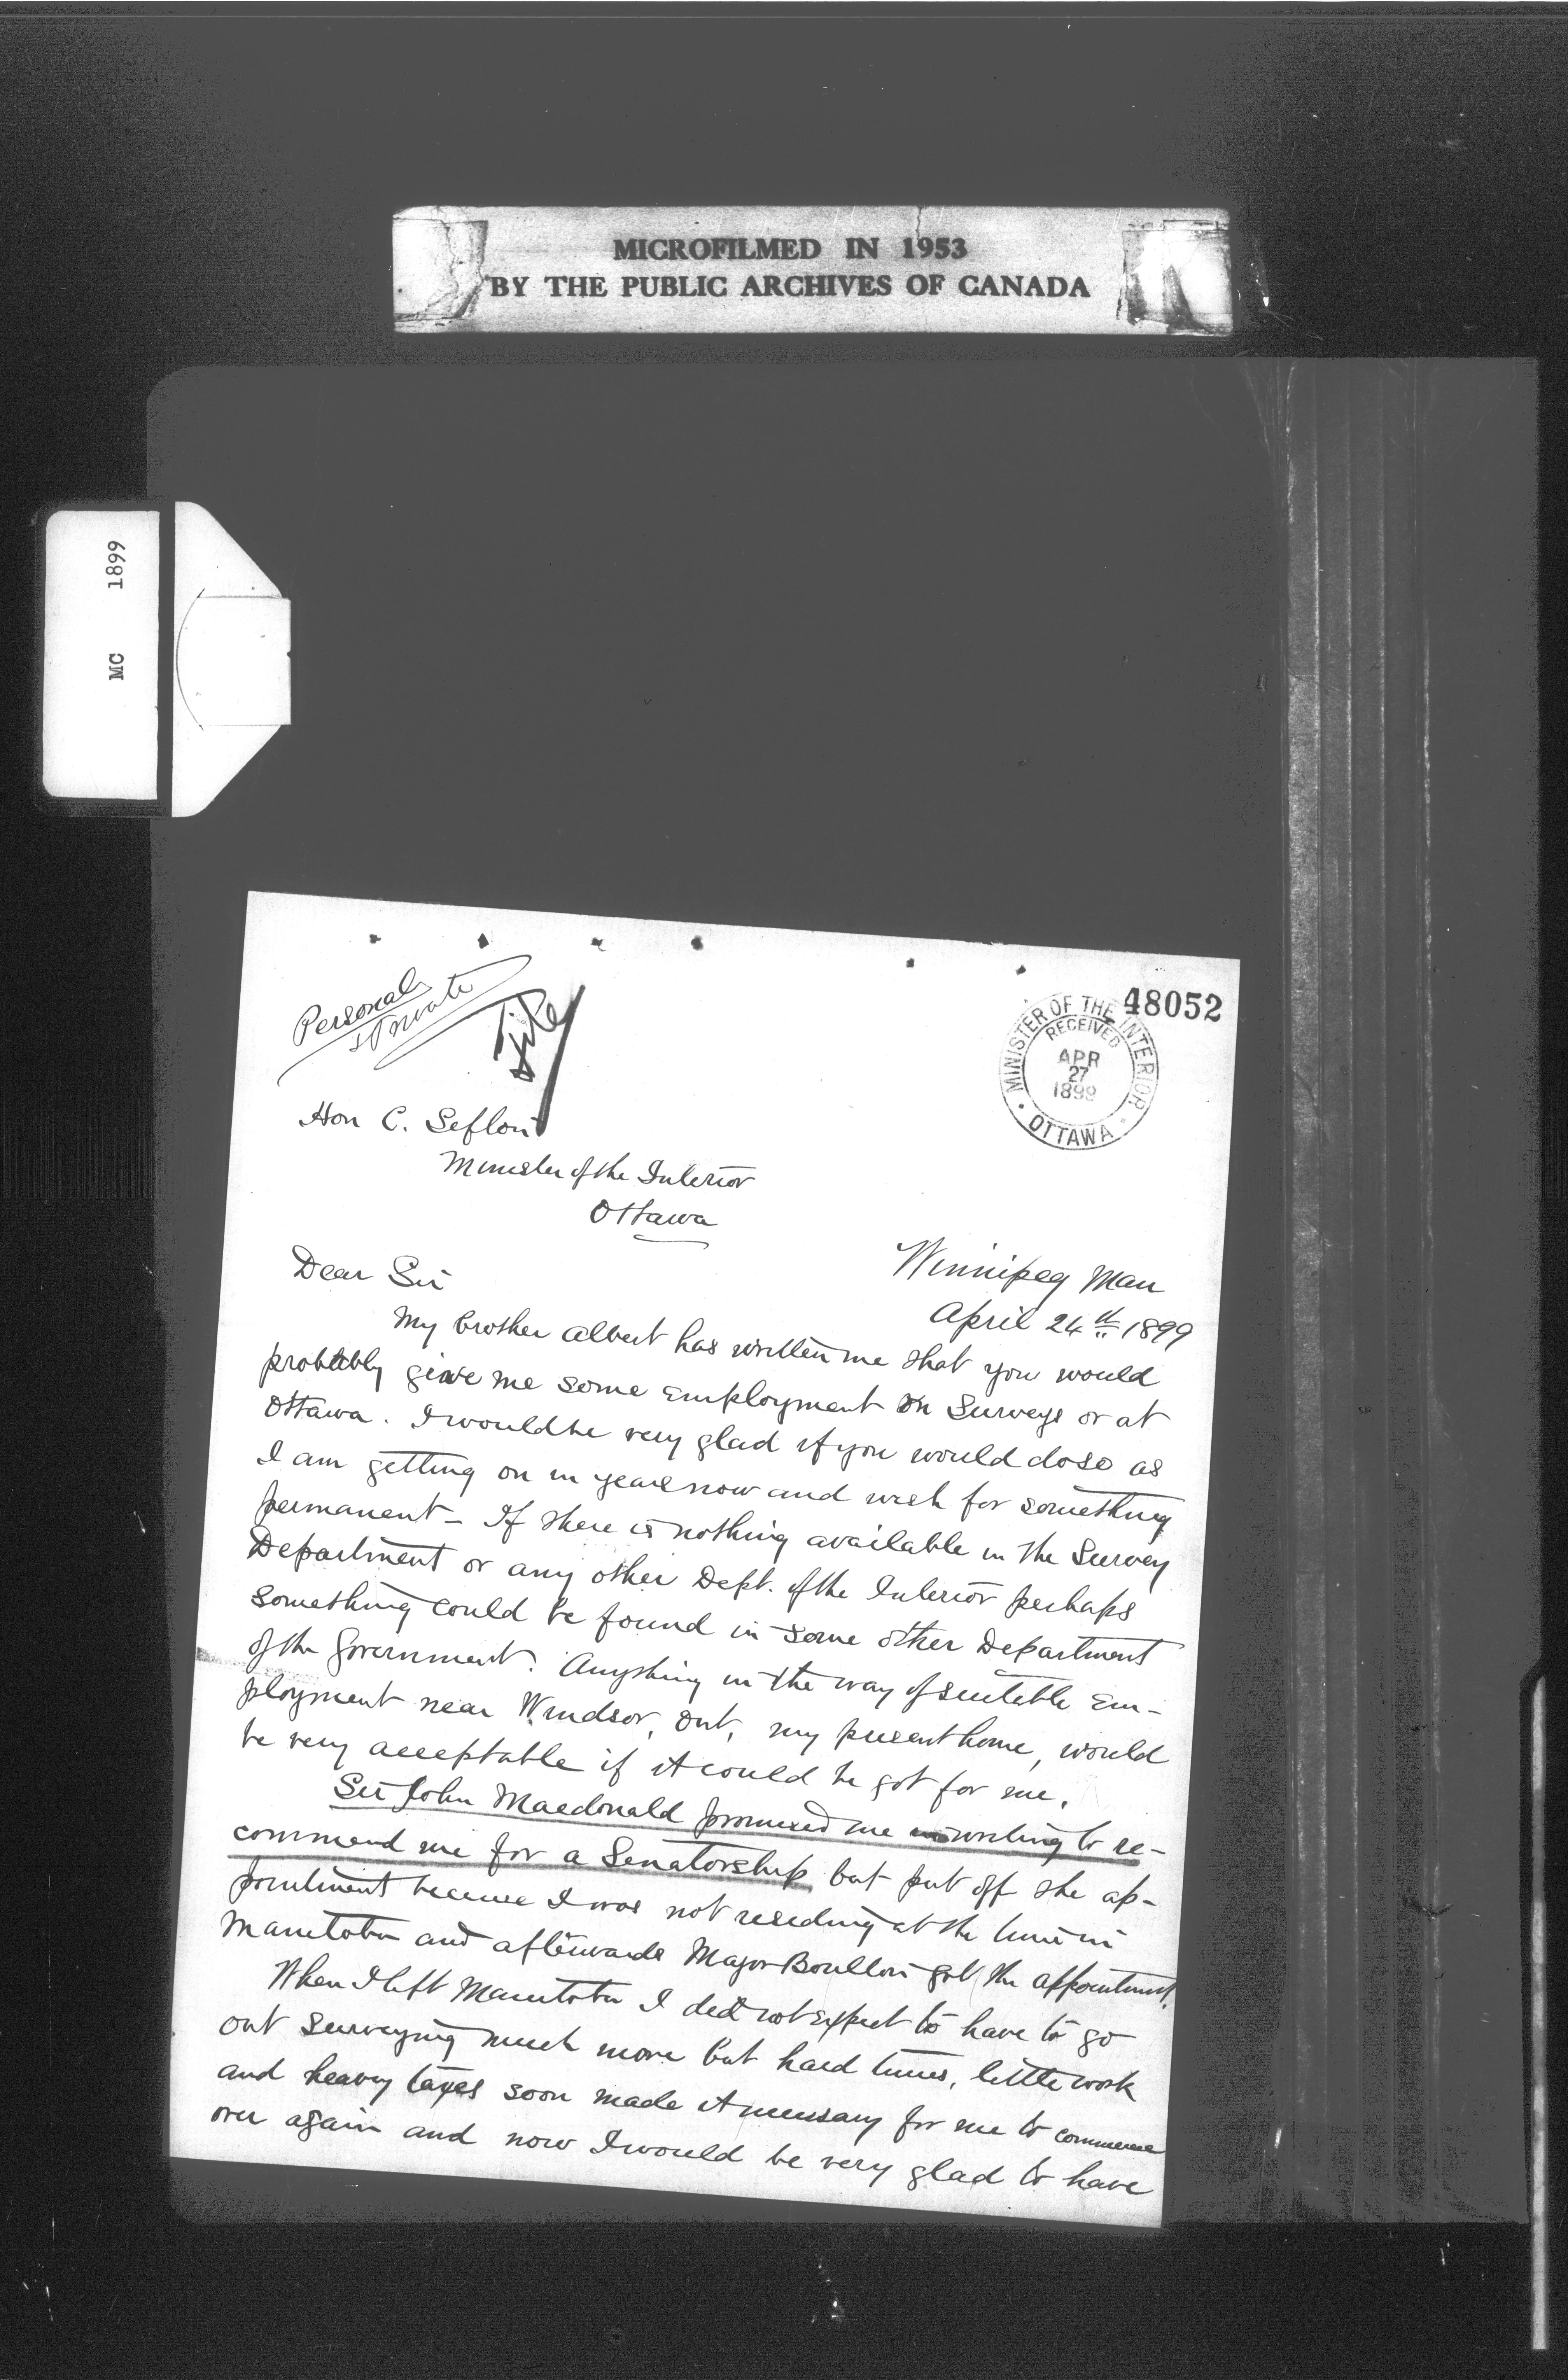 MICROFILMED IN 1953
BY THE PUBLIC ARCHIVES OF CANADA
MC 1899
48052
Personal
& Private
File
MINISTER OF THE INTERIOR
RECEIVED
APR
27
1899
OTTAWA
Hon C. Sefton
Minister of the Interior
Ottawa
Winnipeg Man
April 24th 1899
Dear Sir
My brother Albert has written me that you would
probably give me some employment on Surveys or at
Ottawa. I would be very glad if you would do so as
I am getting on in years now and wish for something
permanent - If there is nothing available in the Survey
Department or any other Dept. of the Interior perhaps
something could be found in some other Department
of the Government. Anything in the way of suitable Em-
ployment near Windsor, Ont, my present home, would
be very acceptable if it could be got for me.
Sir John Macdonald promised me in writing to re-
commend me for a Senatorship but put off the ap-
pointment because I was not residing at the time in
Manitoba and afterwards Major Boulton got the appointment.
When I left Manitoba I did not expect to have to go
out surveying much more but hard times, little work
and heavy taxes soon made it necessary for me to commence
over again and now I would be very glad to have